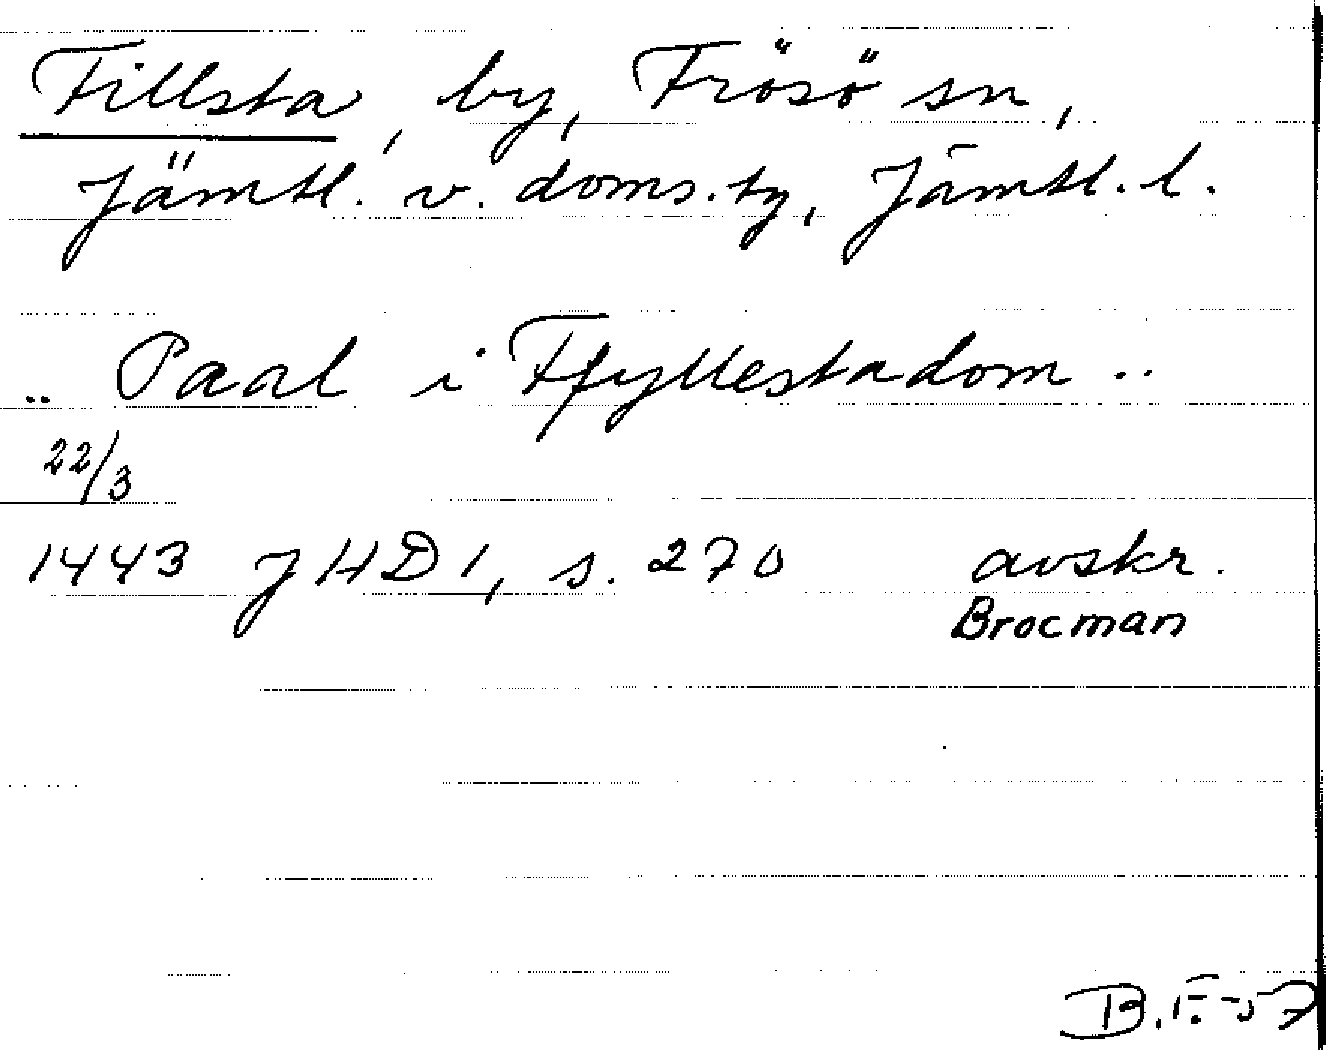 Fillsta, by, Frösö sn,
Jämtl. v. doms.tg, Jämtl. l.
.. Paal i Ffyllestadom ..
22/3
1443 JHD 1, s. 270 avskr.
Brocman
B.F.-57